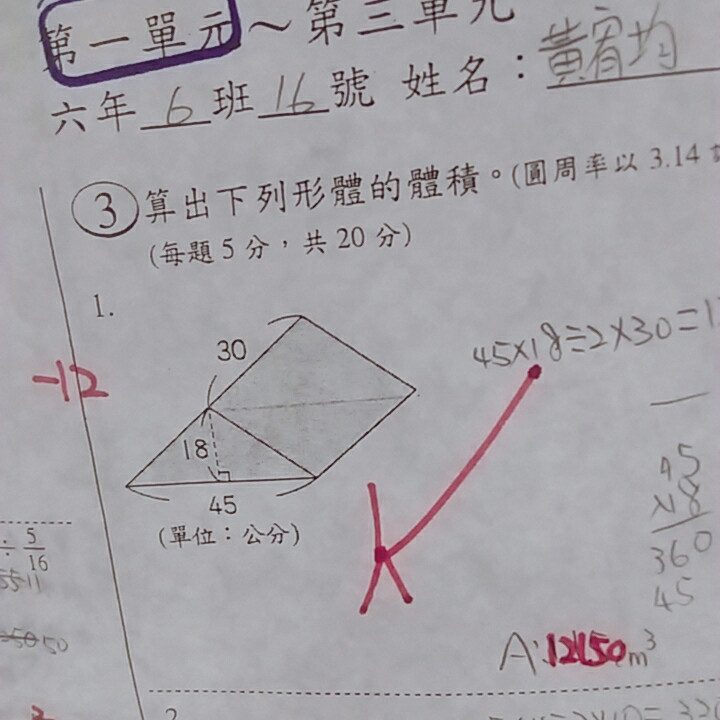 第一單元～第三單元
六年6班16號 姓名：黃宥均
3 算出下列形體的體積。(圓周率以 3.14
(每題 5 分，共 20 分)
1.
30
45×18÷2×30=1
-12
18
45
45
×18
(單位：公分)
÷ 5/16
360
45
5511
50
A:12150m³
2